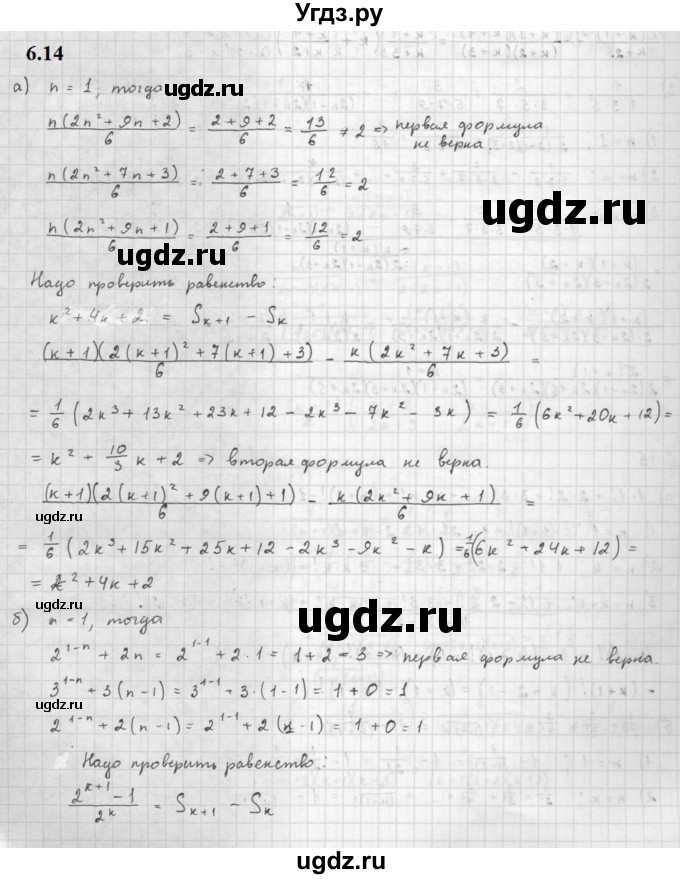 Угдз.ру
6.14
а) n = 1, тогда
n(2n² + 9n + 2)/6 = (2 + 9 + 2)/6 = 13/6 ≠ 2 => первая формула не верна.
ugdz.ru
n(2n² + 7n + 3)/6 = (2 + 7 + 3)/6 = 12/6 = 2
ugdz.ru
ugdz.ru
n(2n² + 9n + 1)/6 = (2 + 9 + 1)/6 = 12/6 = 2
ugdz.ru
Надо проверить равенство:
k² + 4k + 2 = S_{k+1} - S_k
ugdz.ru
(k + 1)(2(k+1)² + 7(k+1) + 3)/6 - k(2k² + 7k + 3)/6 =
ugdz.ru
= 1/6 (2k³ + 13k² + 23k + 12 - 2k³ - 7k² - 3k) = 1/6 (6k² + 20k + 12) =
= k² + 10/3 k + 2 => вторая формула не верна.
ugdz.ru
(k+1)(2(k+1)² + 9(k+1) + 1)/6 - k(2k² + 9k + 1)/6 =
ugdz.ru
= 1/6 (2k³ + 15k² + 25k + 12 - 2k³ - 9k² - k) = 1/6 (6k² + 24k + 12) =
= k² + 4k + 2
ugdz.ru
ugdz.ru
б) n = 1, тогда
2^{1-n} + 2n = 2^{1-1} + 2·1 = 1 + 2 = 3 => первая формула не верна.
ugdz.ru
3^{1-n} + 3(n-1) = 3^{1-1} + 3·(1-1) = 1 + 0 = 1
2^{1-n} + 2(n-1) = 2^{1-1} + 2(1-1) = 1 + 0 = 1
ugdz.ru
Надо проверить равенство:
ugdz.ru
(2^{k+1} - 1)/2^k = S_{k+1} - S_k
ugdz.ru
ugdz.ru